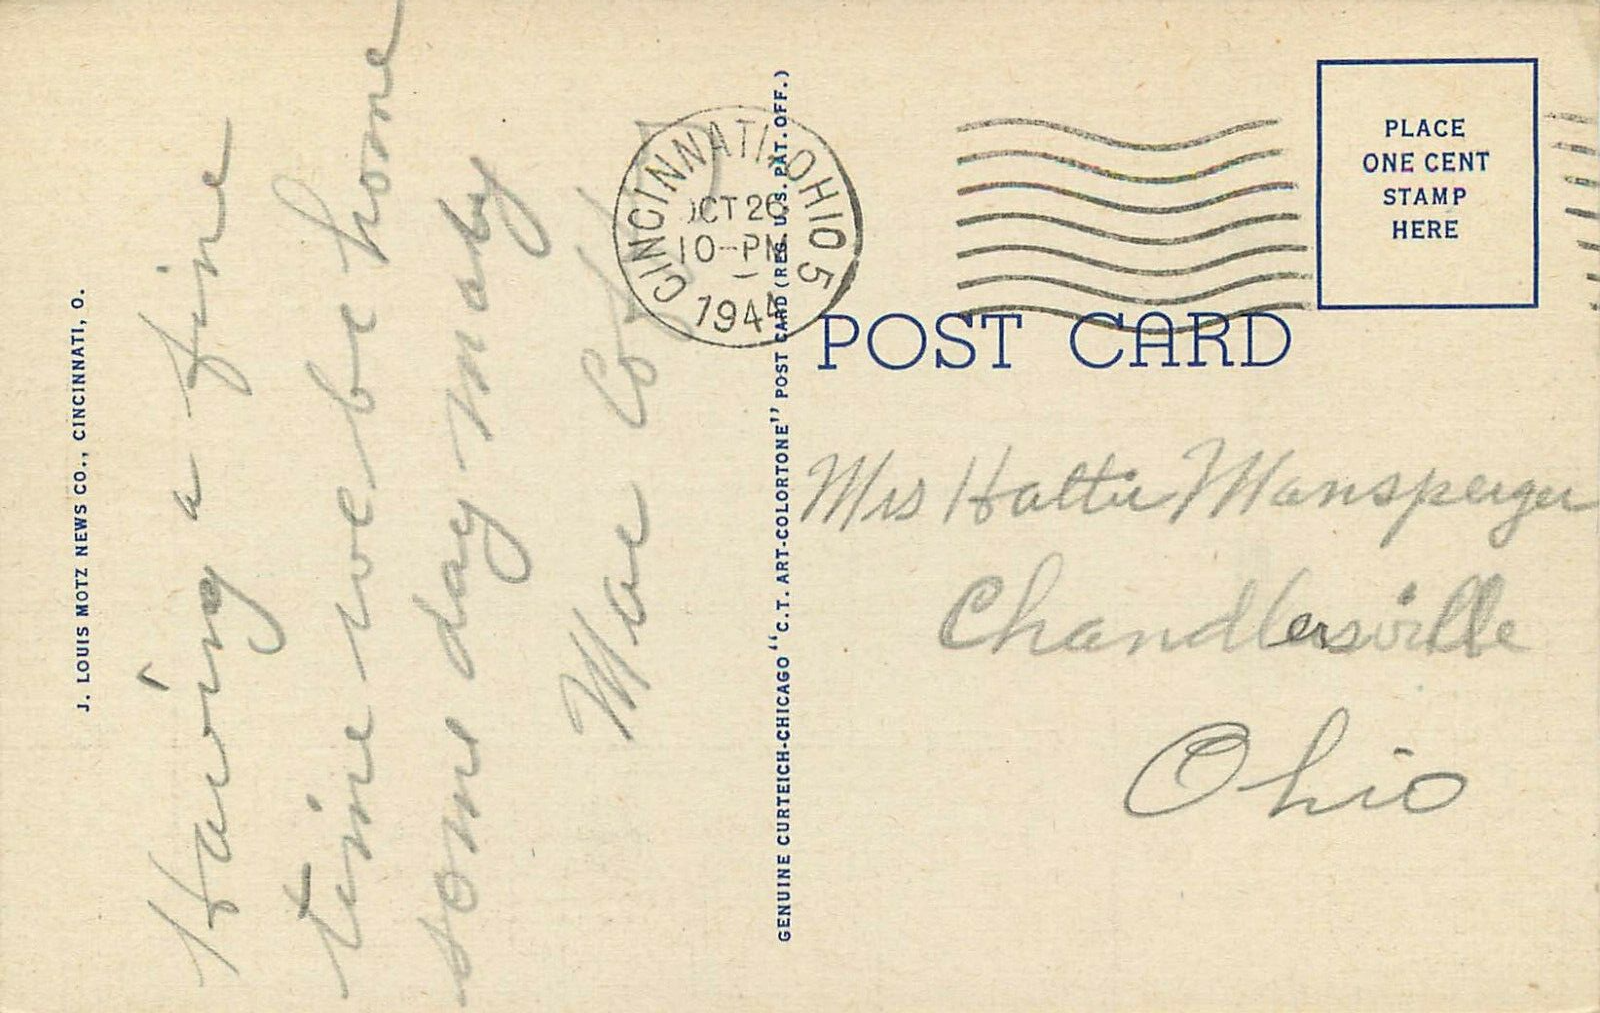 J. LOUIS MOTZ NEWS CO., CINCINNATI, O.
Having a fine
time wee be home
some day maby
Mae
GENUINE CURTEICH-CHICAGO "C.T. ART-COLORTONE" POST CARD (REG. U.S. PAT. OFF.)
CINCINNATI, OHIO 5
OCT 26
10-PM
1944
PLACE
ONE CENT
STAMP
HERE
POST CARD
Mrs Hattie Mansperger
Chandlersville
Ohio